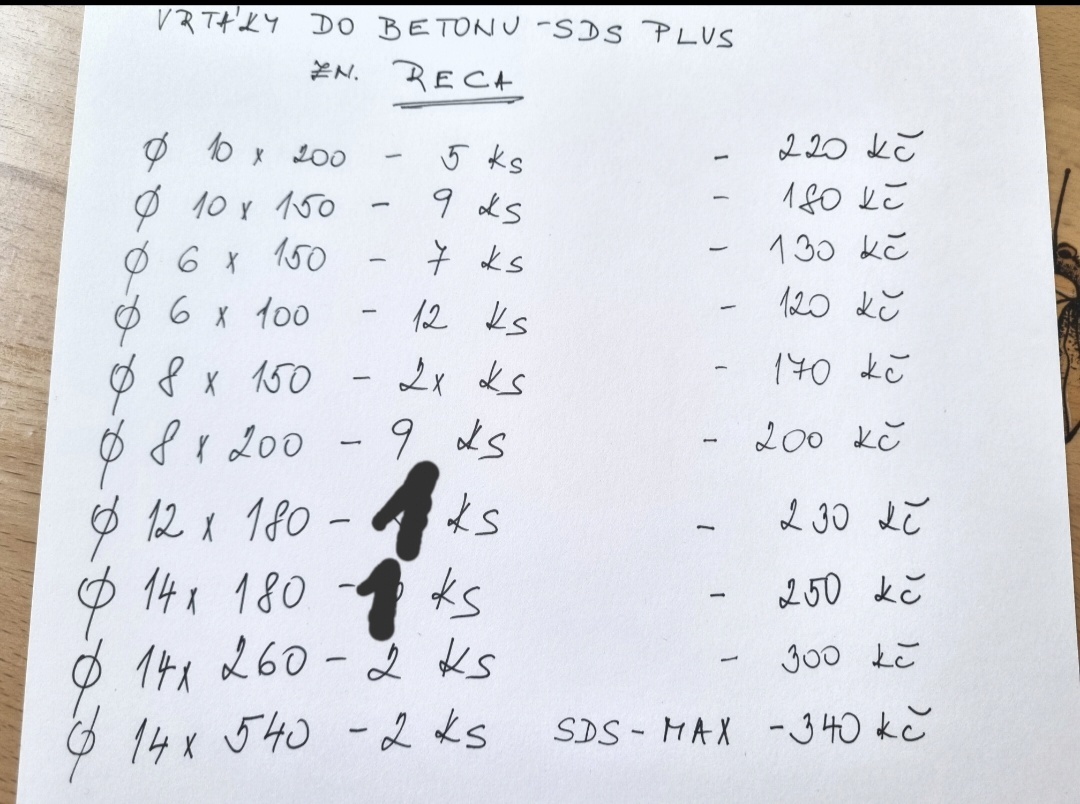 VRTÁKY DO BETONU - SDS PLUS
ZN. RECA
Ø 10 x 200 - 5 ks - 220 kč
Ø 10 x 150 - 9 ks - 180 kč
Ø 6 x 150 - 7 ks - 130 kč
Ø 6 x 100 - 12 ks - 120 kč
Ø 8 x 150 - 2x ks - 170 kč
Ø 8 x 200 - 9 ks - 200 kč
Ø 12 x 180 - 1 ks - 230 kč
Ø 14 x 180 - 1 ks - 250 kč
Ø 14 x 260 - 2 ks - 300 kč
Ø 14 x 540 - 2 ks SDS - MAX - 340 kč